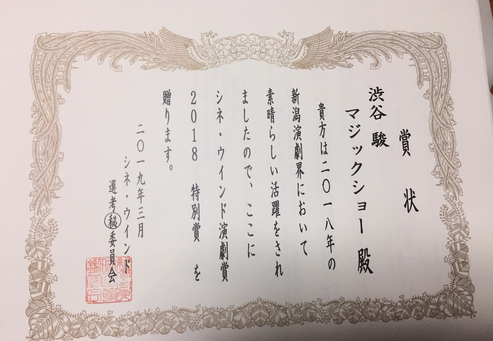 賞状
渋谷 駿
マジックショー 殿
貴方は二〇一八年の
新潟演劇界において
素晴らしい活躍をされ
ましたので、ここに
シネ・ウインド演劇賞
2018 特別賞 を
贈ります。
二〇一九年三月
シネ・ウインド
選考㊙委員会